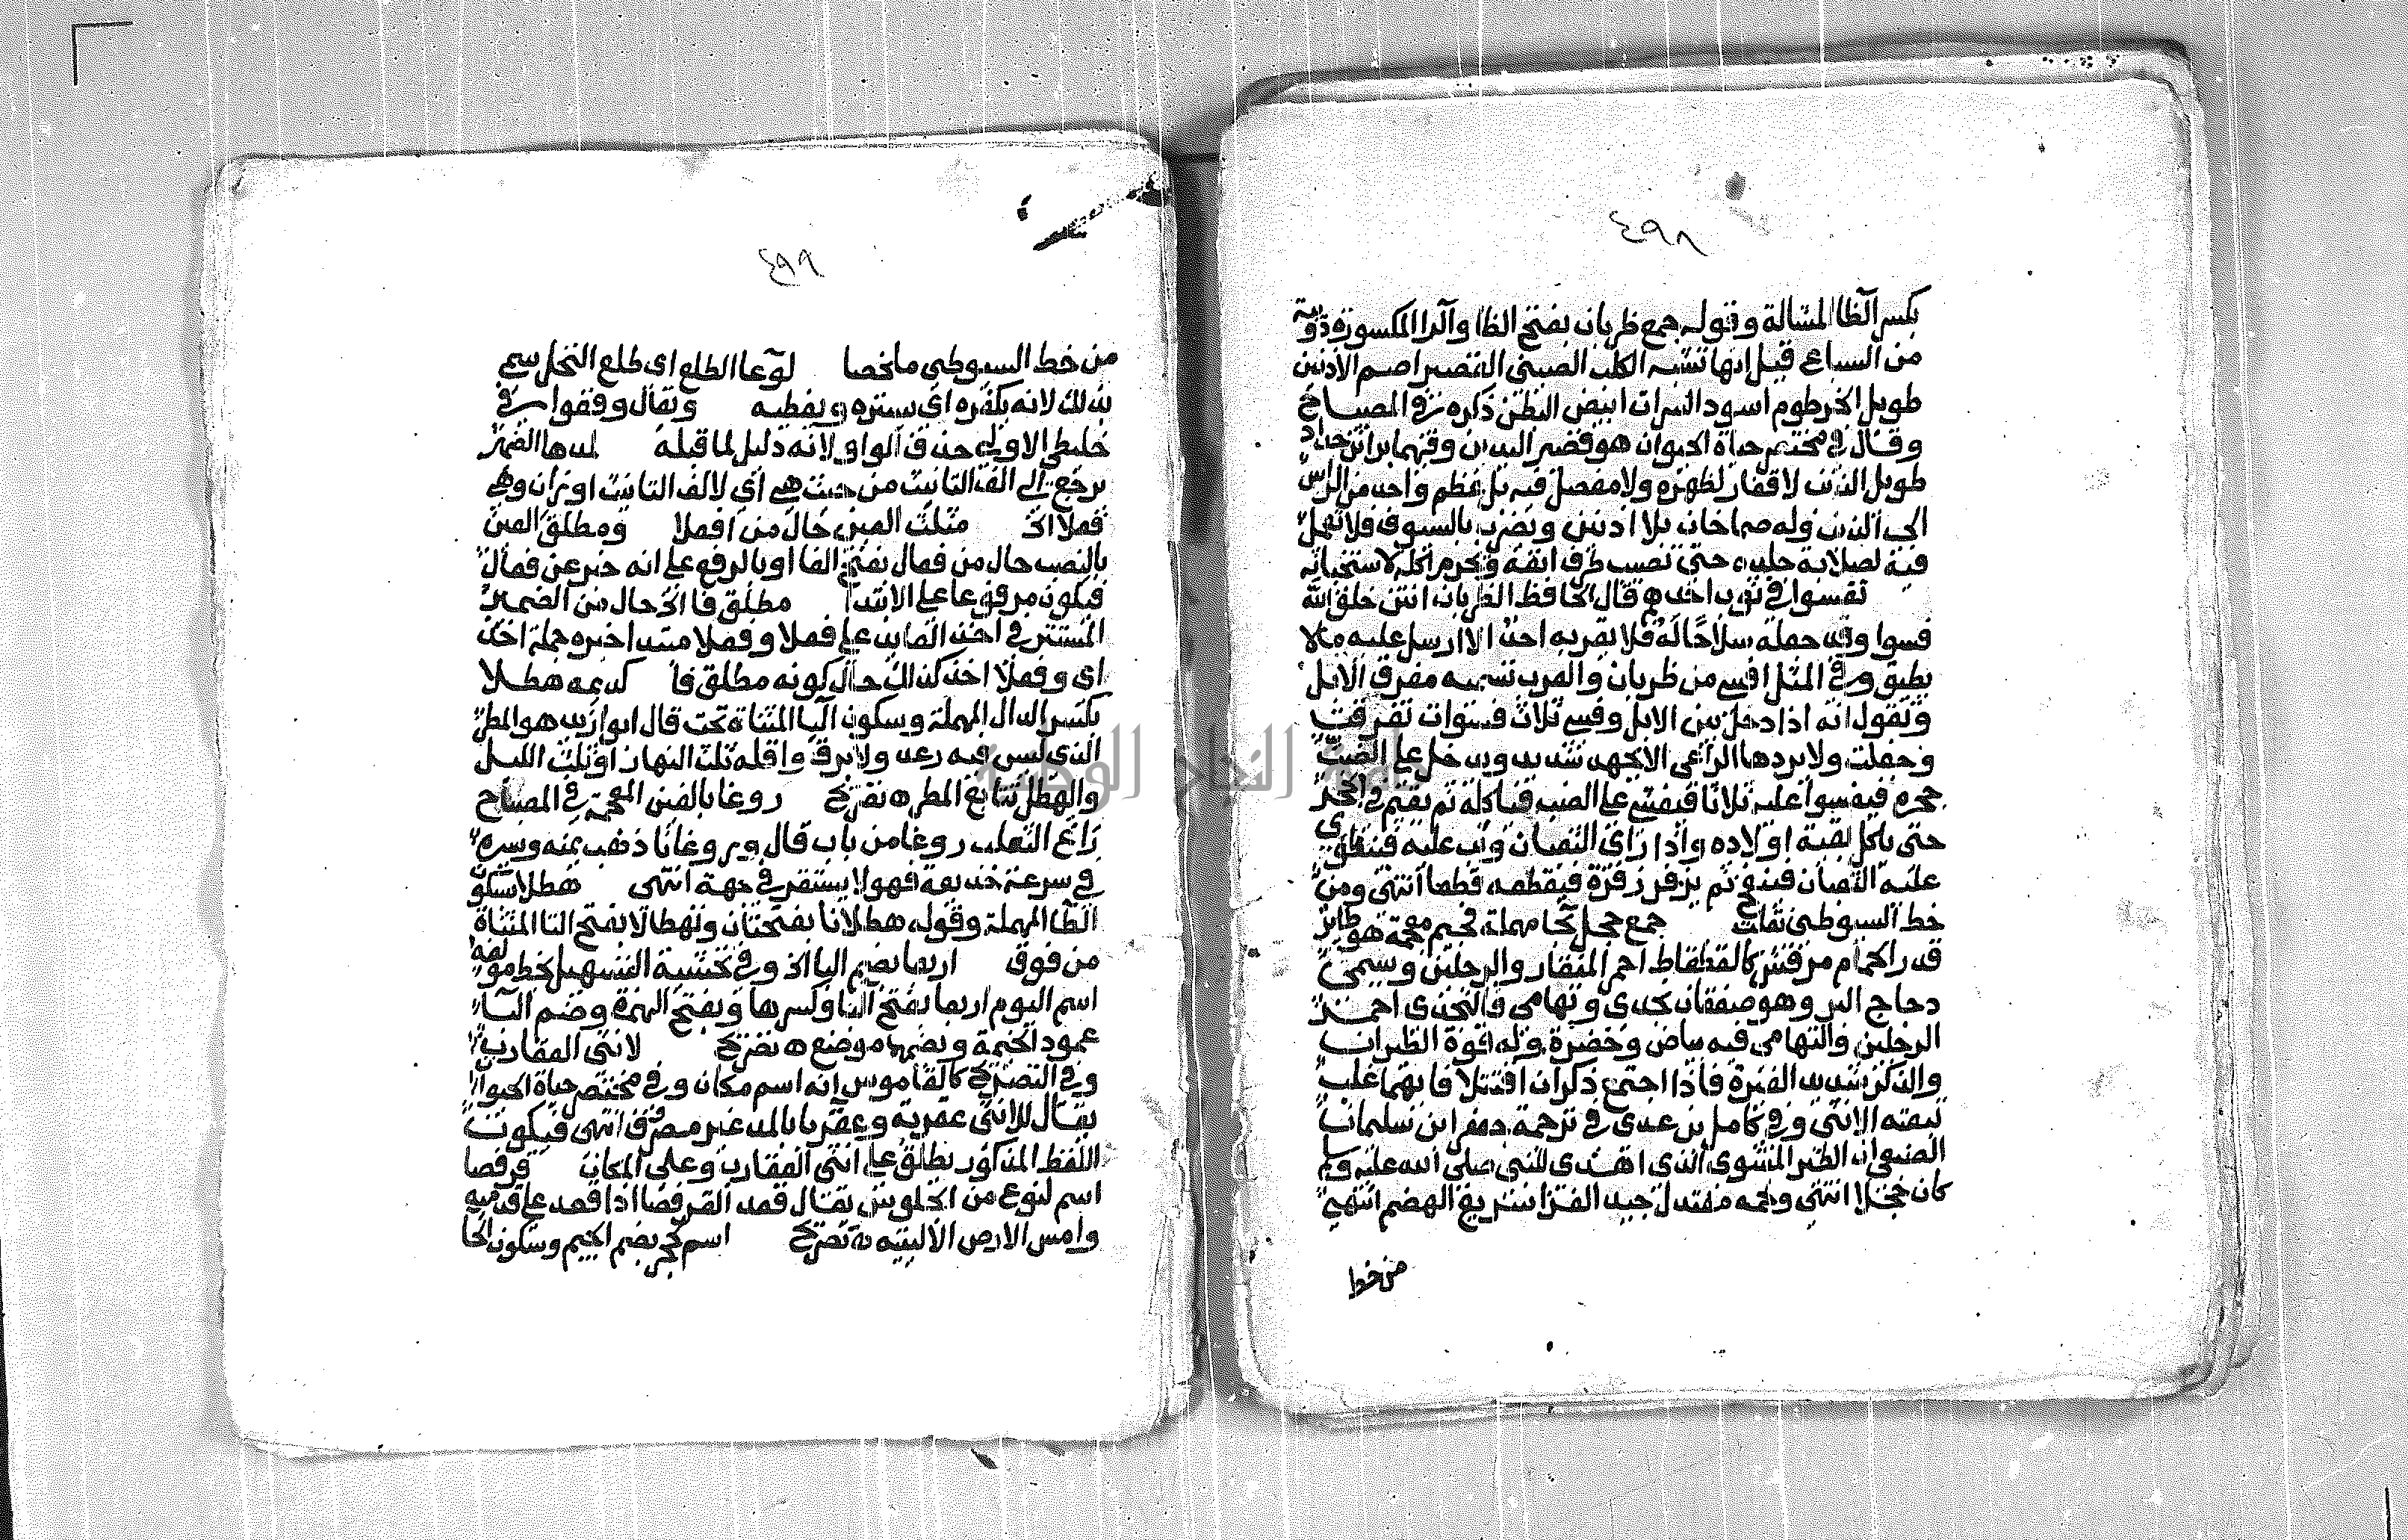 ٤٩٨
بكسر الظا المشالة وقوله جمع ظربان بفتح الظا والرا المكسورة دويبة
من السباع قيل انها تشبه الكلب الصينى القصير اصم الاذنين
طويل الخرطوم اسود السراة ابيض البطن ذكره فى المصباح
وقال فى مختصر حياة الحيوان هو قصير اليدين وفيهما براثن حداد
طويل الذنب لا فقار لظهره ولا مفصل فيه بل عظم واحد من الراس
الى الذنب وله صماخان بلا اذنين ويضرب بالسيوف فلا تعمل
فيه لصلابة جلده حتى تصيب طرف انفه ويحرم اكله لاستخباثه
تفسوا فى ثوب احدهم قال الحافظ الظربان انتن خلق الله
فسوا وقد جعله سلاحا له فلا يقربه احد الا ارسل عليه ما لا
يطيق وفى المثل افسى من ظربان والعرب تسميه مفرق الابل
وتقول انه اذا دخل بين الابل وفسى ثلاث فسوات تفرقت
وجفلت ولا يردها الراعى الا بجهد شديد ويدخل على الضب
جحره فيفسوا عليه ثلاثا فيغشى على الضب فياكله ثم يقيم فى الجحر
حتى ياكل بقية اولاده واذا راى الثعبان وثب عليه فينطوى
عليه الثعبان فينفخ ثم يزفر زفرة فيقطعه قطعا انتهى ومن
خط السيوطى نقلت جمع حجل بحا مهملة فجيم معجمة هو طاير
قدر الحمام مرقش كالقطقاط احمر المنقار والرجلين ويسمى
دجاج البر وهو صنفان نجدى وتهامى والنجدى احمر
الرجلين والتهامى فيه بياض وخضرة وله قوة الطيران
والذكر شديد الغيرة فاذا اجتمع ذكران اقتتلا فايهما غلب
تبعته الانثى وفى كامل بن عدى فى ترجمة جعفر ابن سليمان
الضبعى ان الطير المشوى الذى اهدى للنبى صلى الله عليه وسلم
كان حجلا انتهى ولحمه معتدل جيد الغذا سريع الهضم انتهى
من خط
٤٩٩
من خط السيوطى ملخصا لوعا الطلع اى طلع النخل سمى
بذلك لانه يكفره اى يستره ويغطيه ويقال وقفوا فى
خليطى الاولى حذف الواو لانه دليل لما قبله لمدها الضمير
يرجع الى الف التانيث من حيث هى اى لالف التانيث اوزان وهى
فعلا الخ مثلث العين حال من افعلا ومطلق العين
بالنصب حال من فعال بفتح الفا او بالرفع على انه خبر عن فعال
فيكون مرفوعا على الابتدا مطلق فا الخ حال من الضمير
المستتر فى اخذ العايد على فعلا وفعلا مبتدا خبره جملة اخذ
اى وفعلا اخذ كذلك حال كونه مطلق فا ديمه هطلا
بكسر الدال المهملة وسكون اليا المثناة تحت قال ابوازيد هو المطر
الذى ليس فيه رعد ولا برق واقله ثلث النهار او ثلث الليل
والهطل تتابع المطر ه تصريح روغا بالغين المعجمة فى المصباح
راغ الثعلب روغا من باب قال وروغانا ذهب يمنه ويسره
فى سرعة خديعة فهو لا يستقر فى جهة انتهى هطلا بسكون
الطا المهملة وقوله هطلانا بفتحتان وتهطالا بفتح التا المثناة
من فوق اربعا بضم البا الخ وفى تحشية التسهيل بخط مولفه
اسم اليوم اربعا بفتح البا وكسرها وبفتح الهمزة وضم البا
عمود الخيمة وبضمهما موضع ه تصريح لانثى العقارب
وفى التصريح كالقاموس انه اسم مكان وفى مختصر حياة الحيوان
يقال للانثى عقربة وعقربا بالمد غير مصرف انتهى فيكون
اللفظ المذكور يطلق على انثى العقارب وعلى المكان قرفصا
اسم لنوع من الجلوس يقال قعد القرفصا اذا قعد على قدميه
وامس الارض الاليتيه ه تصريح اسم لحجر بضم الجيم وسكون الحا